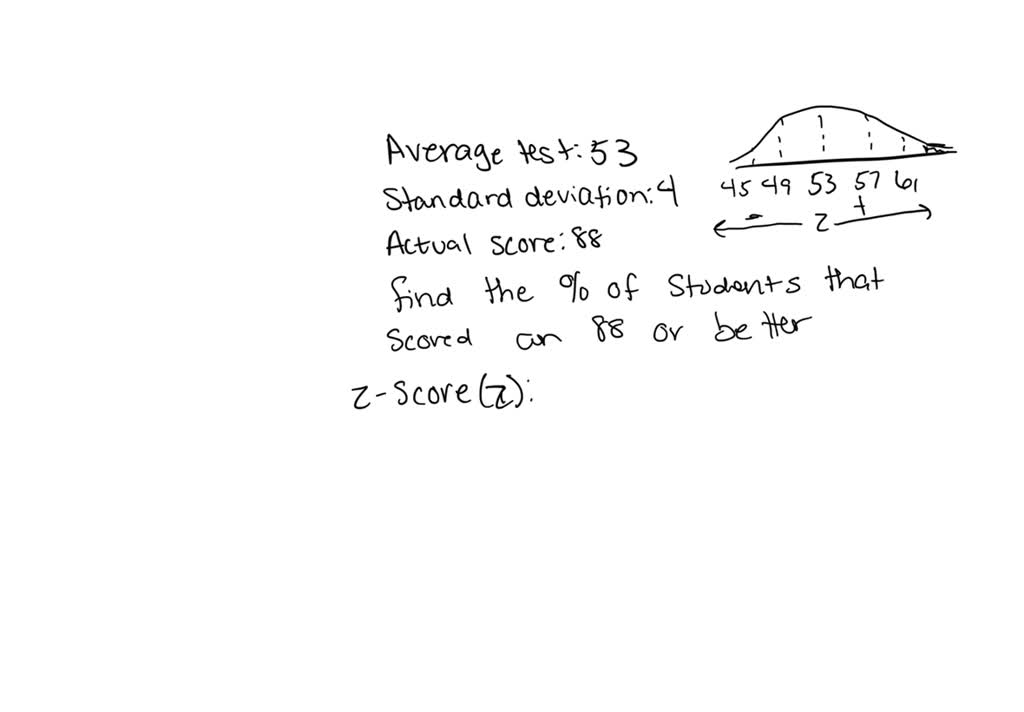 Average test: 53
Standard deviation: 4
Actual score: 88
find the % of students that
scored an 88 or better
z-score(z):
45 49 53 57 61
- z +